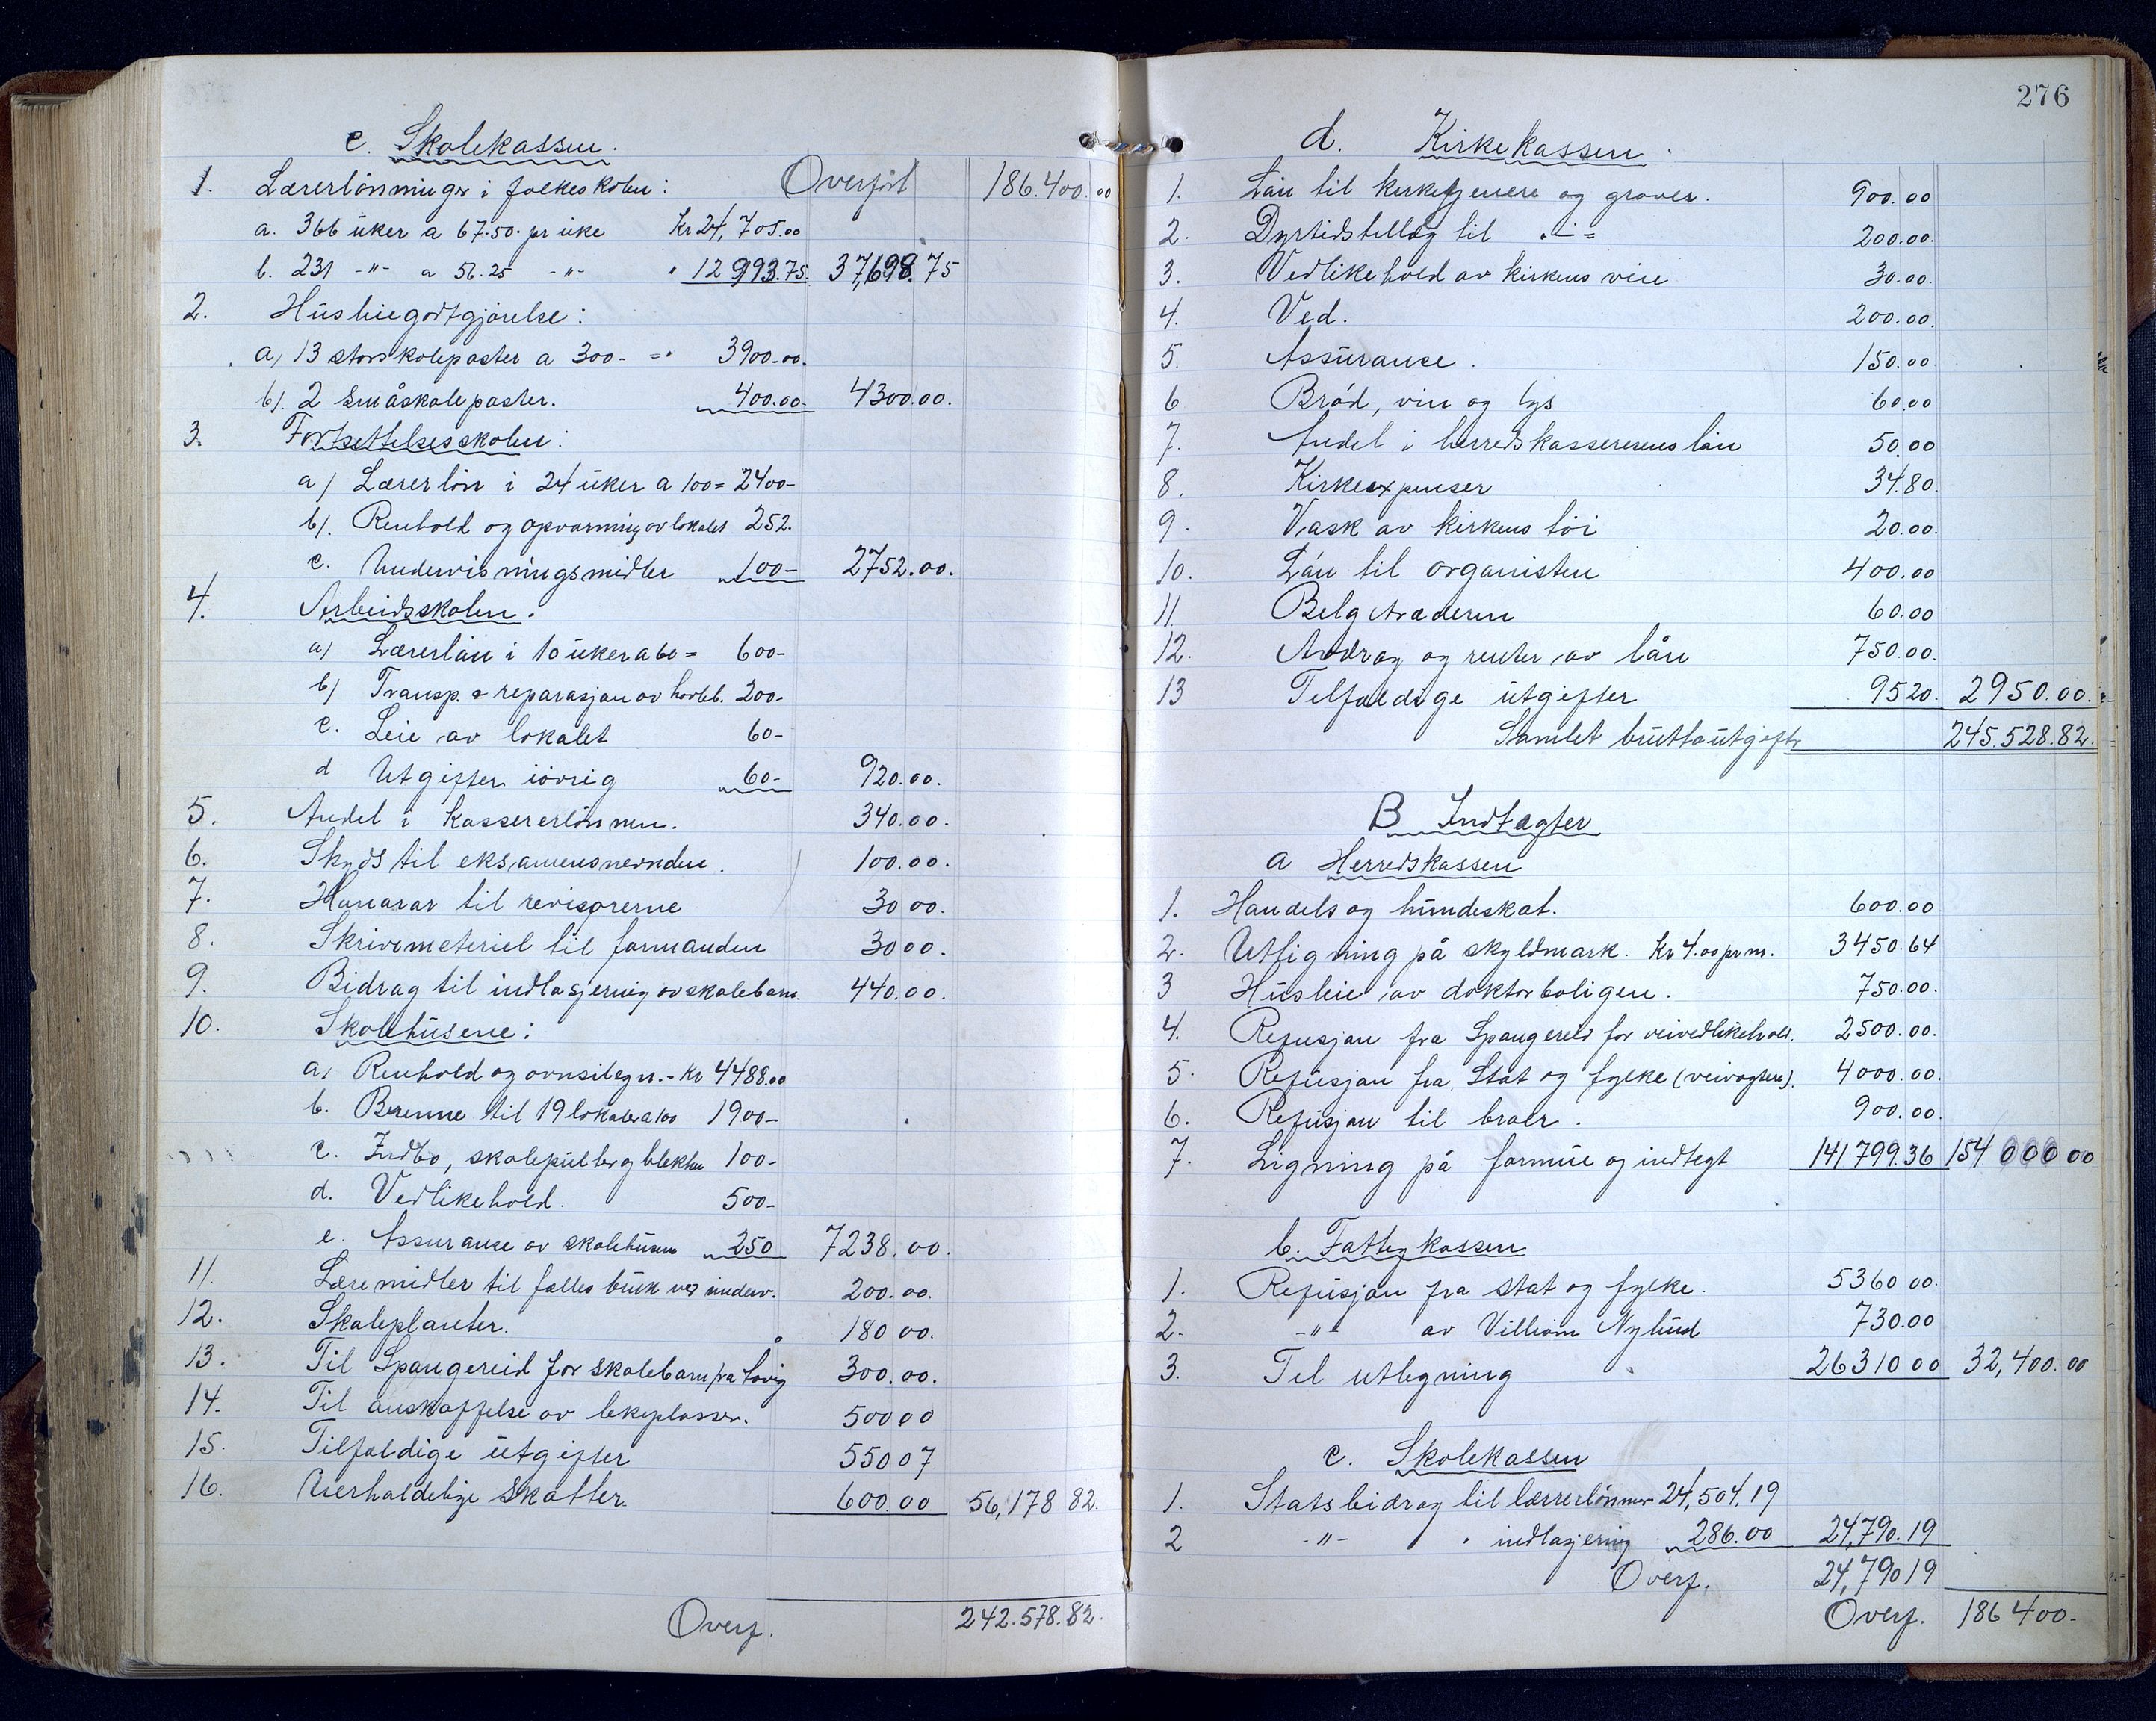 c. Skolekassen.
1. Lærerlönninger i folkeskolen: Overført 186.400.00
a. 366 uker a 67.50. pr uke Kr 24,705.00
b. 231 -"- a 56.25 -"- " 12 993.75. 37,698.75
2. Husleiegodtgjörelse:
a) 13 storskoleposter a 300- =" 3900-00.
b). 2 småskoleposter. 400.00- 4300.00.
3. Fortsettelsesskolen:
a) Lærerlön i 24 uker a 100= 2400-
b). Renhold og opvarming av lokalet 252.
c. Undervisningsmidler 100- 2752.00.
4. Arbeidsskolen.
a) Lærerlön i 10 uker a 60= 600-
b) Transp. & reparasjon av høvleb. 200-
c. Leie av lokalet 60-
d Utgifter iövrig 60- 920.00.
5. Andel i kassererlönnen. 340.00.
6. Skyds til eksamensnevnden. 100.00.
7. Honorar til revisorerne 30 00.
8. Skrivemateriel til formanden 30 00.
9. Bidrag til indlosjering av skolebarn. 440.00.
10. Skolehusene:
a) Renhold og ovnsilegn.- Kr 4488.00
b. Brenne til 19 lokaler a 100 1900-
c. Indbo, skolepulter og blekhus 100-
d. Vedlikehold. 500-
e. Assuranse av skolehusene 250 7238.00.
11. Læremidler til fælles bruk ved underv. 200.00.
12. Skoleplanter. 180 00.
13. Til Spangereid for skolebarn fra 300.00.
14. Til anskaffelse av lekeplasser. 500 00
15. Tilfældige utgifter 550 07
16. Uerholdelige skatter. 600.00 56,178 82.
Overf. 242.578.82.
276
d. Kirkekassen.
1. Lön til kirketjenere og graver. 900.00
2. Dyrtidstillæg til -"- 200.00.
3. Vedlikehold av kirkens vei 30.00.
4. Ved. 200.00.
5. Assuranse. 150.00
6 Bröd, vin og lys 60.00
7. Andel i herredskassererens lön 50.00
8. Kirkeexpenser 34.80.
9. Vask av kirkens töi 20.00.
10. Lön til organisten 400.00
11. Belgtræderen 60.00
12. Avdrag og renter av lån 750.00.
13 Tilfældige utgifter 95 20. 2950.00.
Samlet bruttoutgifter 245.528.82.
B Indtægter
a Herredskassen
1. Handels og hundeskat. 600.00
2. Utligning på skyldmark. Kr 4.00 pr m. 3450.64
3 Husleie av doktorboligen. 750.00.
4. Refusjon fra Spangereid for veivedlikehold. 2500.00.
5. Refusjon fra Stat og fylke (veivogtere). 4000.00.
6. Refusjon til broer. 900.00.
7. Ligning på formue og indtegt 141 799.36 154 000 00
b. Fattigkassen
1. Refusjon fra stat og fylke. 5360 00.
2. -"- av Villiam Nylund 730.00
3. Til utligning 26310 00 32,400.00
c. Skolekassen
1. Statsbidrag til lærerlönnen 24,504,19
2 -"- " indlosjering 286.00 24,790.19
Overf. 24,790 19
Overf. 186 400.-